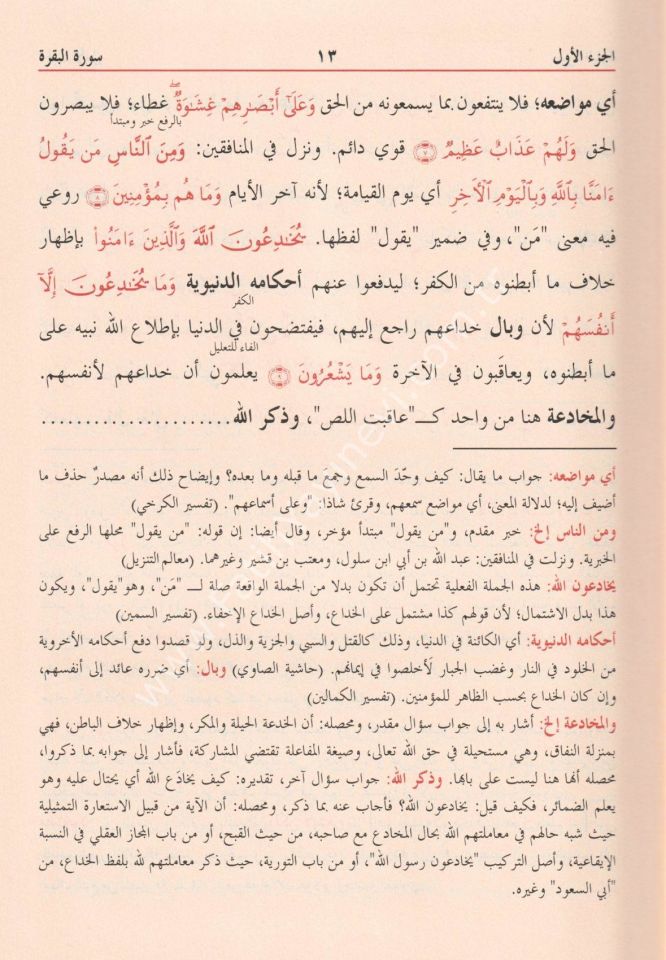 الجزء الأول ١٣ سورة البقرة
أي مواضعه؛ فلا ينتفعون بما يسمعونه من الحق وَعَلَىٰٓ أَبْصَٰرِهِمْ غِشَٰوَةٌ غطاء؛ فلا يبصرون
بالرفع خبر ومبتدأ
الحق وَلَهُمْ عَذَابٌ عَظِيمٌ ٧ قوي دائم. ونزل في المنافقين: وَمِنَ ٱلنَّاسِ مَن يَقُولُ
ءَامَنَّا بِٱللَّهِ وَبِٱلْيَوْمِ ٱلْأَخِرِ أي يوم القيامة؛ لأنه آخر الأيام وَمَا هُم بِمُؤْمِنِينَ ٨ روعي
فيه معنى "مَن"، وفي ضمير "يقول" لفظها. يُخَٰدِعُونَ ٱللَّهَ وَٱلَّذِينَ ءَامَنُوا۟ بإظهار
خلاف ما أبطنوه من الكفر؛ ليدفعوا عنهم أحكامه الدنيوية وَمَا يُخَٰدِعُونَ إِلَّآ
الكفر
أَنفُسَهُمْ لأن وبال خداعهم راجع إليهم، فيفتضحون في الدنيا بإطلاع الله نبيه على
الفاء للتعليل
ما أبطنوه، ويعاقَبون في الآخرة وَمَا يَشْعُرُونَ ٩ يعلمون أن خداعهم لأنفسهم.
والمخادعة هنا من واحد كـ"عاقبت اللص"، وذكر الله......................
أي مواضعه: جواب ما يقال: كيف وحّدَ السمع وجمعَ ما قبله وما بعده؟ وإيضاح ذلك أنه مصدرٌ حذف ما
أضيف إليه؛ لدلالة المعنى، أي مواضع سمعهم، وقرئ شاذا: "وعلى أسماعهم". (تفسير الكرخي)
ومن الناس إلخ: خبر مقدم، و"من يقول" مبتدأ مؤخر، وقال أيضا: إن قوله: "من يقول" محلها الرفع على
الخبرية. ونزلت في المنافقين: عبد الله بن أبي ابن سلول، ومعتب بن قشير وغيرهما. (معالم التنزيل)
يخادعون الله: هذه الجملة الفعلية تحتمل أن تكون بدلا من الجملة الواقعة صلة لـ "مَن"، وهو"يقول"، ويكون
هذا بدل الاشتمال؛ لأن قولهم كذا مشتمل على الخداع، وأصل الخداع الإخفاء. (تفسير السمين)
أحكامه الدنيوية: أي الكائنة في الدنيا، وذلك كالقتل والسبي والجزية والذل، ولو قصدوا دفع أحكامه الأخروية
من الخلود في النار وغضب الجبار لَأخلصوا في إيمانهم. (حاشية الصاوي) وبال: أي ضرره عائد إلى أنفسهم،
وإن كان الخداع بحسب الظاهر للمؤمنين. (تفسير الكمالين)
والمخادعة إلخ: أشار به إلى جواب سؤال مقدر، ومحصله: أن الخدعة الحيلة والمكر، وإظهار خلاف الباطن، فهي
بمنزلة النفاق، وهي مستحيلة في حق الله تعالى، وصيغة المفاعلة تقتضي المشاركة، فأشار إلى جوابه بما ذكروا،
محصله أنها هنا ليست على بابها. وذكر الله: جواب سؤال آخر، تقديره: كيف يخادَع الله أي يحتال عليه وهو
يعلم الضمائر، فكيف قيل: يخادعون الله؟ فأجاب عنه بما ذكر، ومحصله: أن الآية من قبيل الاستعارة التمثيلية
حيث شبه حالهم في معاملتهم الله بحال المخادع مع صاحبه، من حيث القبح، أو من باب المجاز العقلي في النسبة
الإيقاعية، وأصل التركيب "يخادعون رسول الله"، أو من باب التورية، حيث ذكر معاملتهم لله بلفظ الخداع، من
"أبي السعود" وغيره.